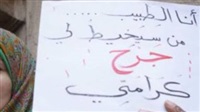 أنا الطبيب...
من سيخيط لي
جرح
كرامتي